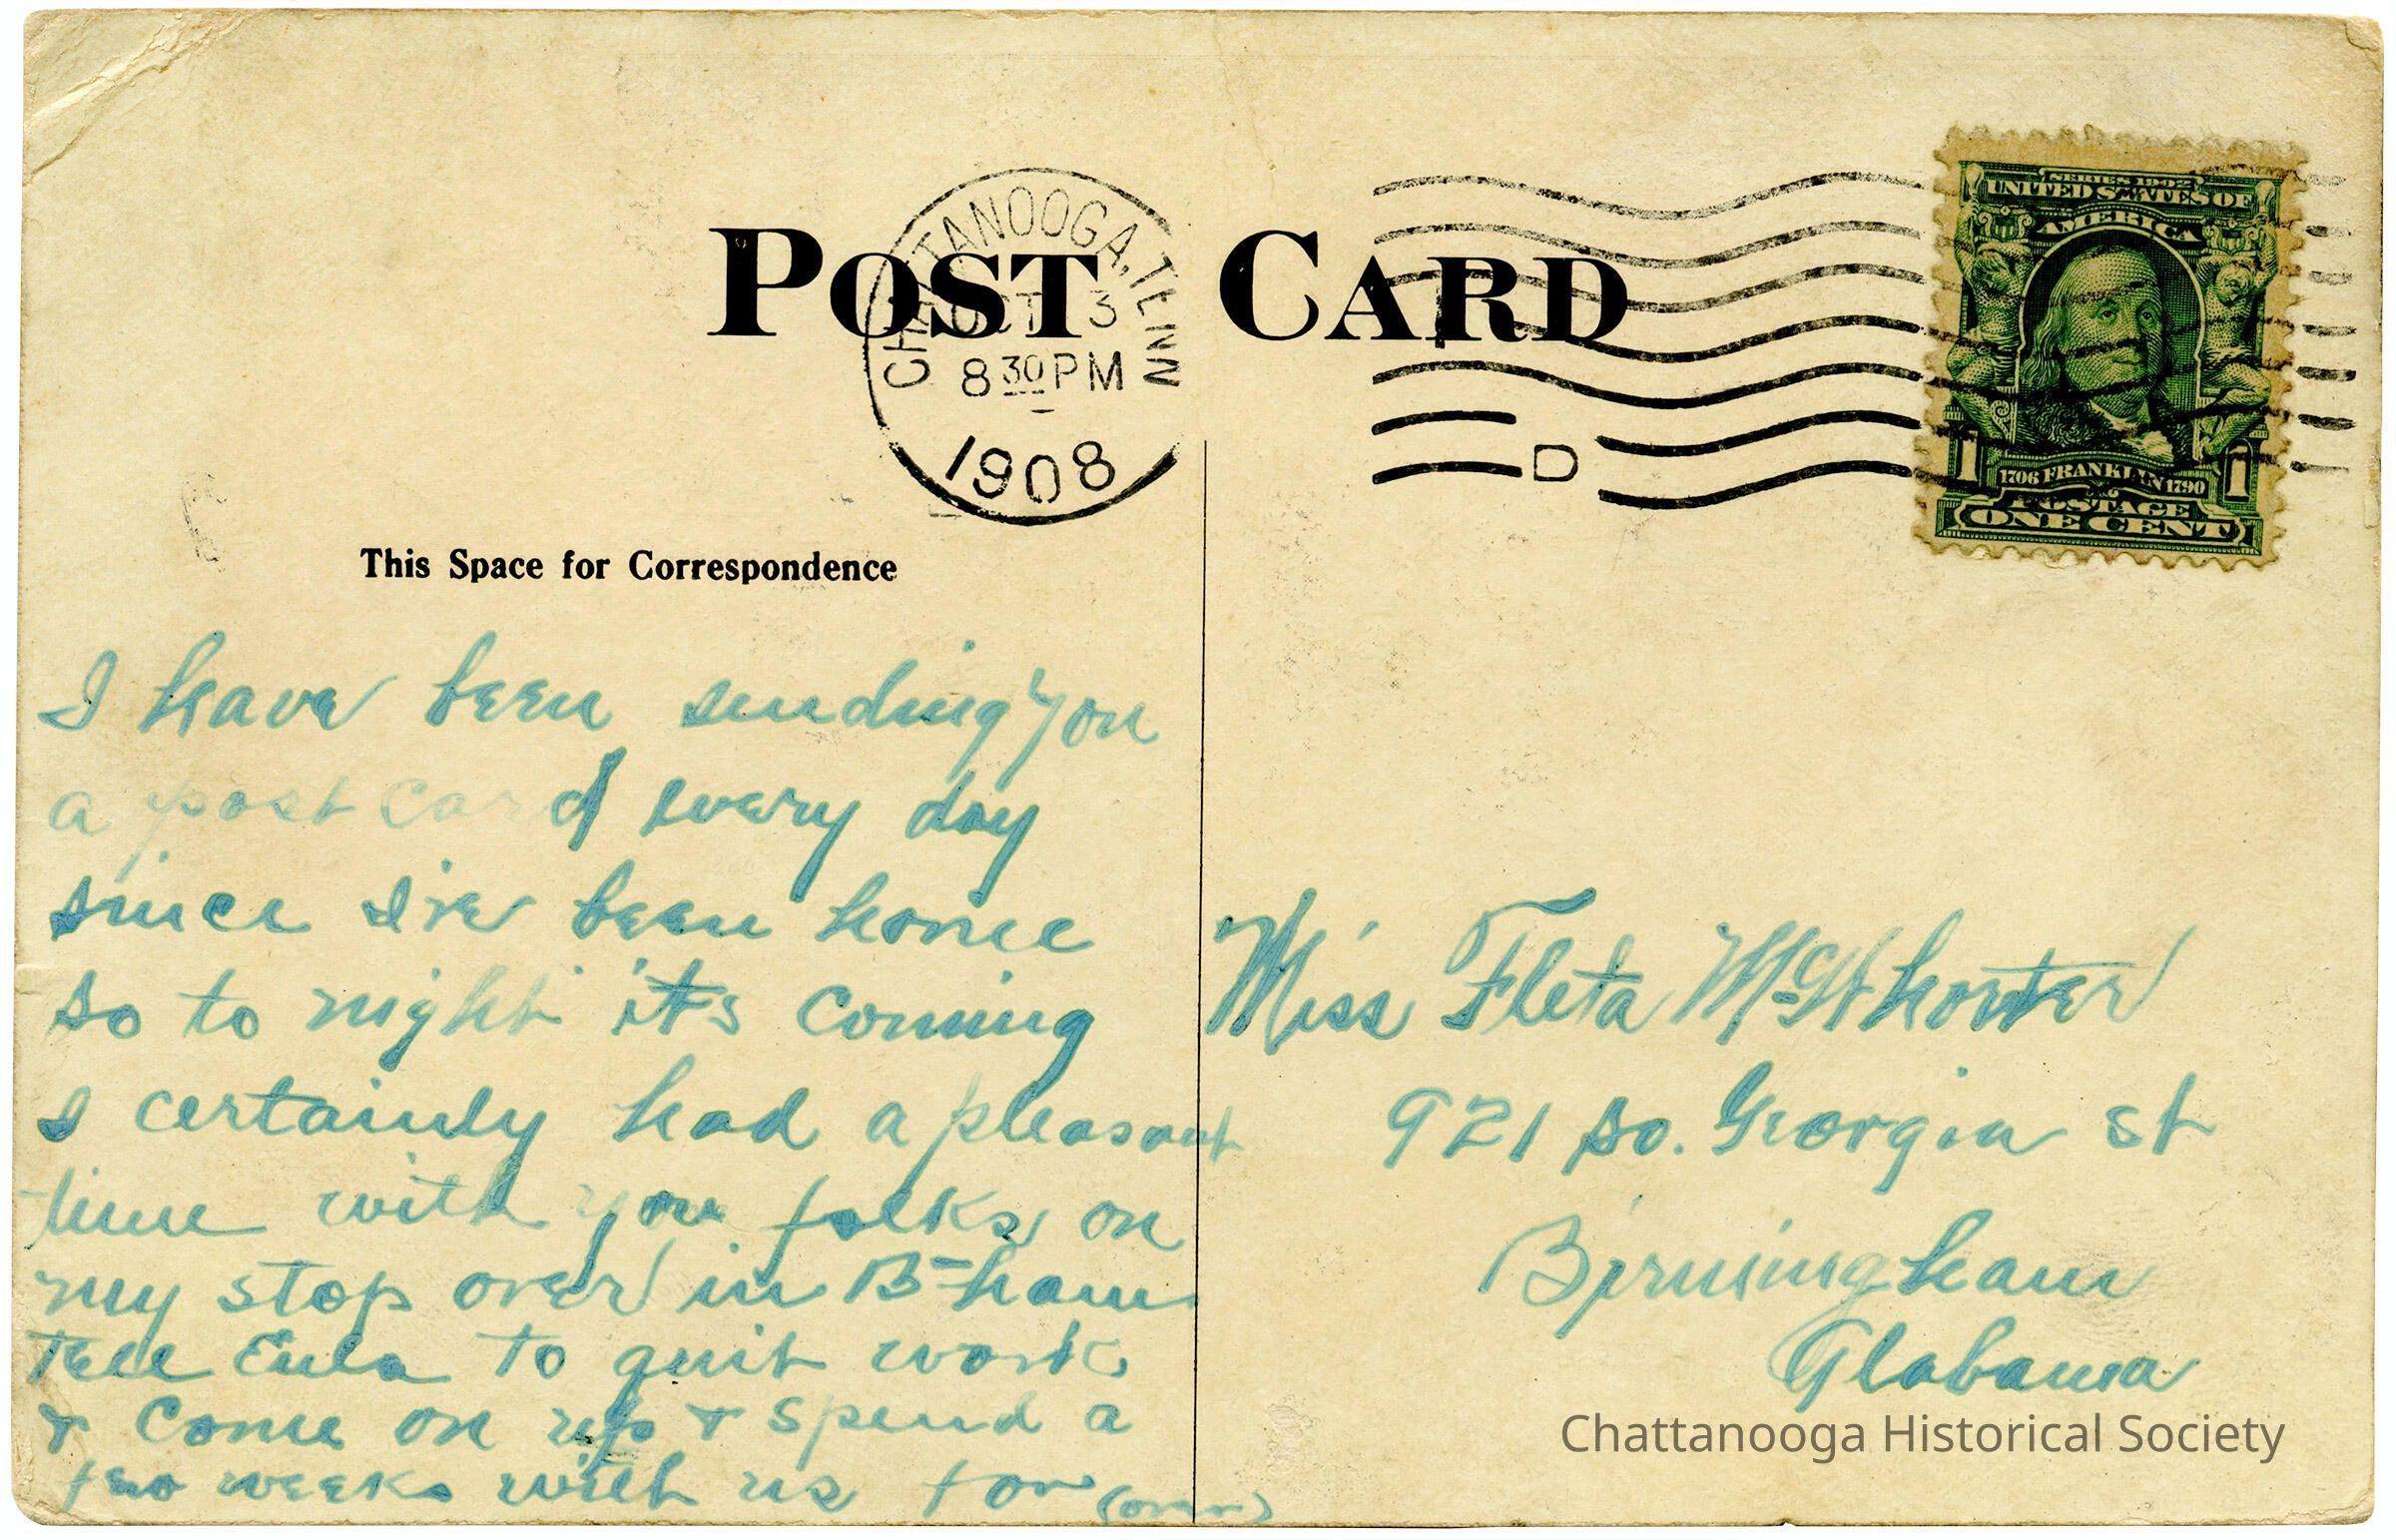 POST CARD
CHATTANOOGA, TENN
OCT 3
8 30 PM
1908
D
SERIES 1902
UNITED STATES OF
AMERICA
1706 FRANKLIN 1790
POSTAGE
1 1
ONE CENT
This Space for Correspondence
I have been sending you
a post card every day
since I've been home
so to night it's coming
I certainly had a pleasant
time with you folks on
my stop over in B-ham
Tell Eula to quit work
& come on up & spend a
two weeks with us for (over)
Miss Fleta McWhorter
921 So. Georgia St
Birmingham
Alabama
Chattanooga Historical Society